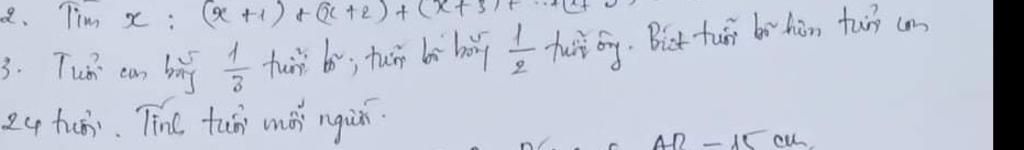 2. Tìm x : (x + 1) + (x + 2) + (x + 3) +
3. Tuổi con bằng 1/3 tuổi bố; tuổi bố bằng 1/2 tuổi ông. Biết tuổi bố hơn tuổi con
24 tuổi. Tính tuổi mỗi người.
AB = 15 cm